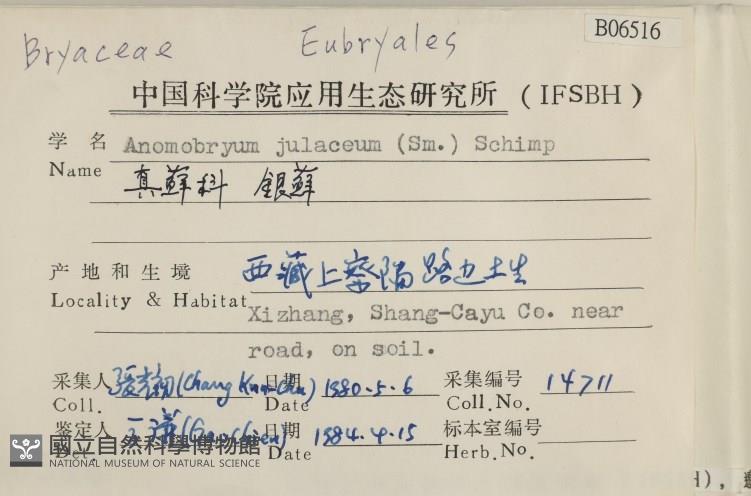 B06516
Bryaceae Eubryales
中国科学院应用生态研究所 (IFSBH)
学 名 Anomobryum julaceum (Sm.) Schimp
Name 真蘚科 銀蘚
产地和生境 西藏上察隅路边土生
Locality & Habitat Xizhang, Shang-Cayu Co. near
road, on soil.
采集人 (Chang 日期 1980.5.6 采集编号 14711
Coll. Date Coll.No.
鉴定人 日期 1984.4.15 标本室编号
Det. Date Herb.No.
國立自然科學博物館
NATIONAL MUSEUM OF NATURAL SCIENCE